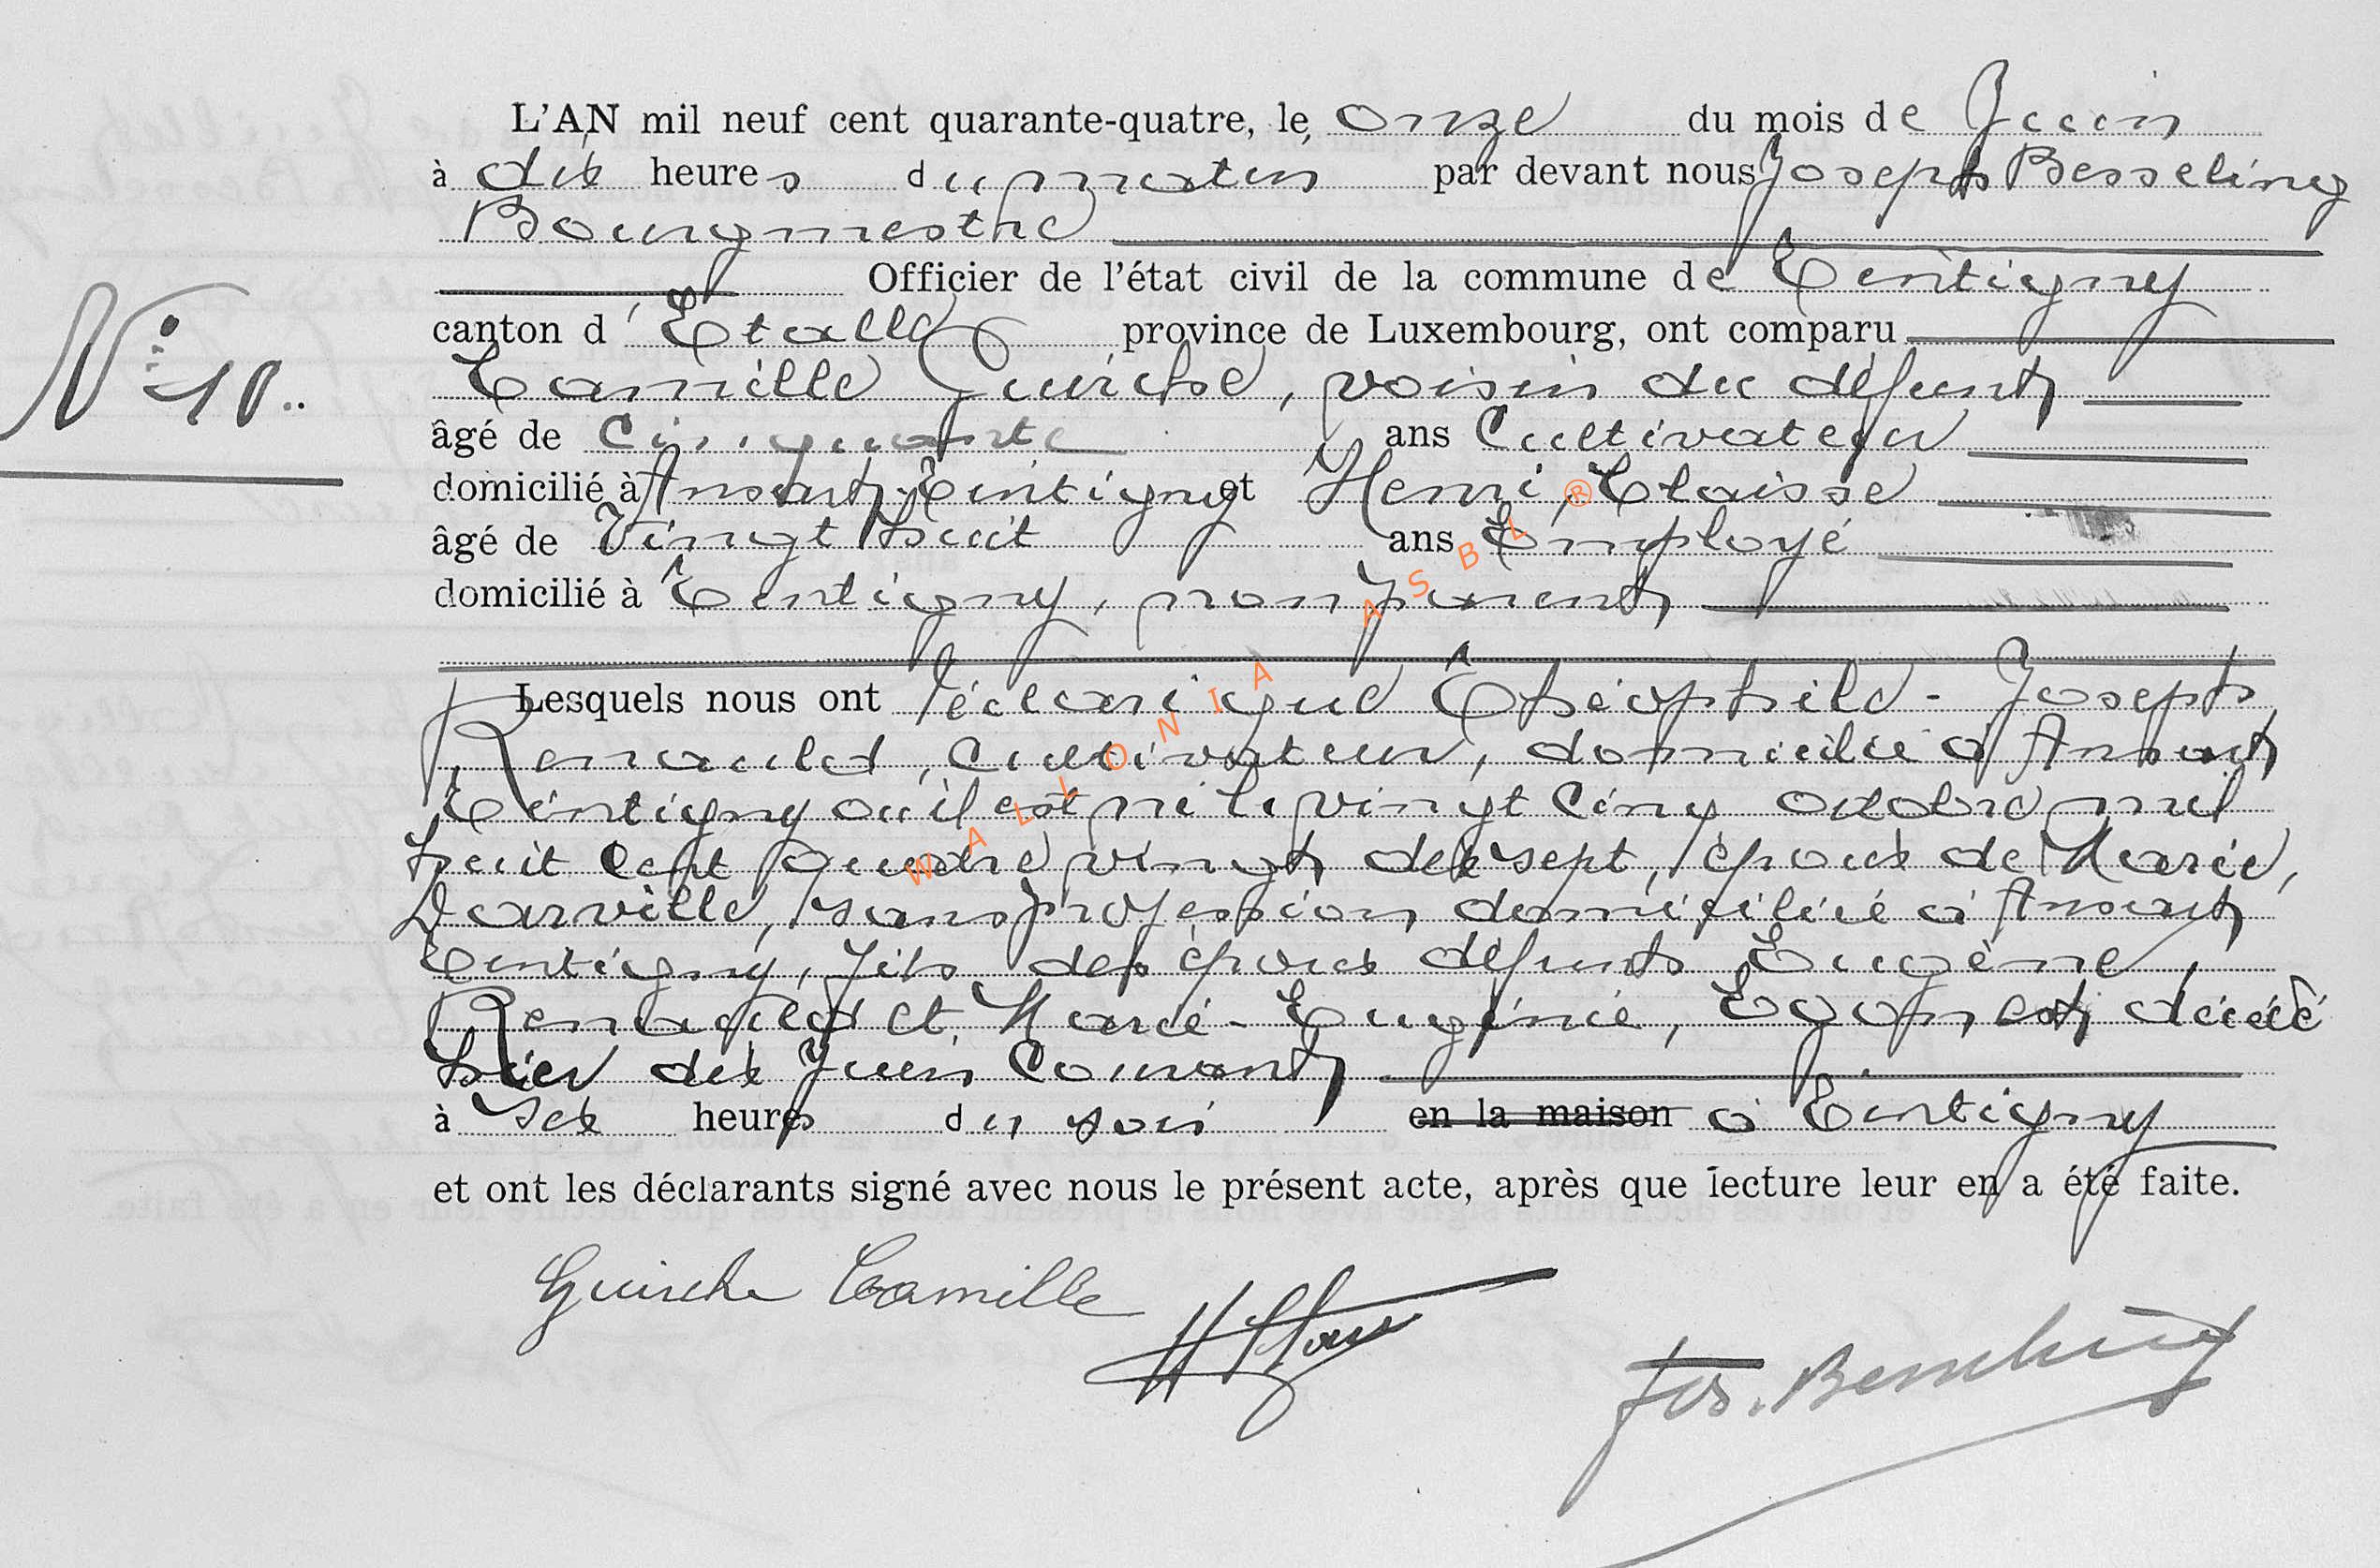 L'AN mil neuf cent quarante-quatre, le onze du mois de Juin
à dix heures du matin par devant nous Joseph Besseling
Bourgmestre
Officier de l'état civil de la commune de Tintigny
N° 10..
canton d'Etalle province de Luxembourg, ont comparu
Camille Guirche, voisin du défunt
âgé de Cinquante ans Cultivateur
domicilié à Ansart-Tintigny et Henri Claisse
âgé de Vingt huit ans Employé
domicilié à Tintigny, non parent
Lesquels nous ont déclaré que Théophile-Joseph
Renauld, Cultivateur, domicilié à Ansart
Tintigny où il est né le vingt cinq octobre mil
huit cent quatre vingt dix sept, époux de Marie,
Darville, sans profession domiciliée à Ansart
Tintigny, fils des époux défunts Eugène,
Renauld et Marie-Eugénie, est décédé
hier dix Juin Courant
à six heures du soir en la maison à Tintigny
et ont les déclarants signé avec nous le présent acte, après que lecture leur en a été faite.
Guirche Camille
Jos. Besseling
WALLONIA ASBL ®